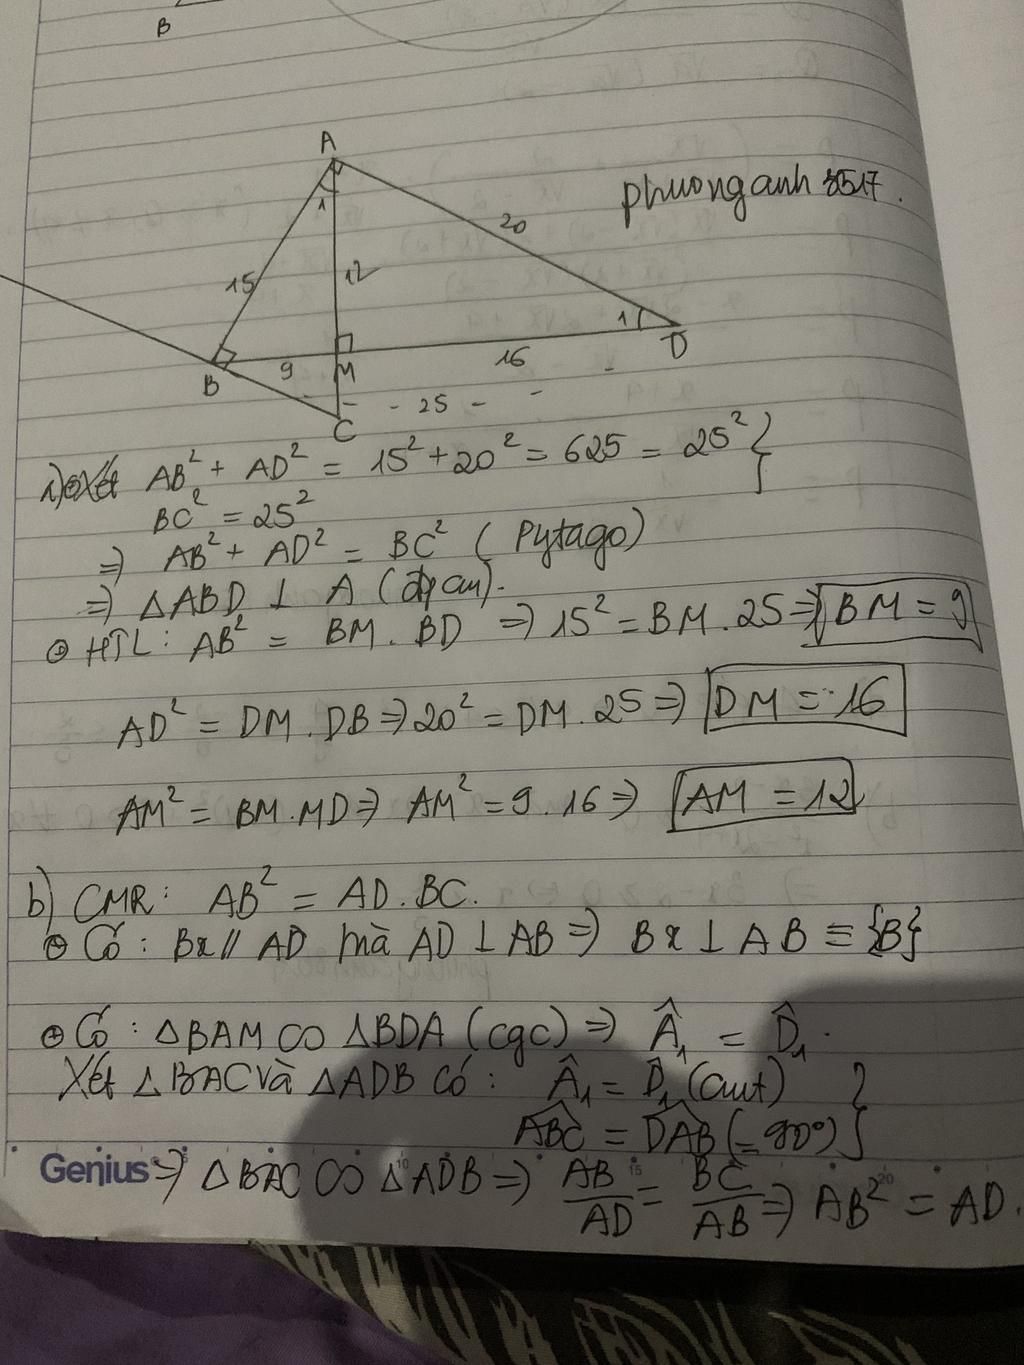 B
A
phuonganh 8517.
20
1
15
12
1
D
B
9
M
16
- - 25 - -
C
a) Xét AB² + AD² = 15² + 20² = 625 = 25² }
BC² = 25²
=> AB² + AD² = BC² (Pytago)
=> △ABD ⊥ A (đpcm).
⊕ HTL: AB² = BM . BD => 15² = BM . 25 => BM = 9
AD² = DM . DB => 20² = DM . 25 => DM = 16
AM² = BM . MD => AM² = 9 . 16 => AM = 12
b) CMR: AB² = AD . BC.
⊕ Có: Bx // AD mà AD ⊥ AB => Bx ⊥ AB ≡ {B}
⊕ Có: △BAM ∽ △BDA (cgc) => Â₁ = D̂₁.
Xét △BAC và △ADB có: Â₁ = D̂₁ (cmt) }
ABC = DAB (= 90°)
Genius => △BAC ∽ △ADB => AB/AD = BC/AB => AB² = AD.